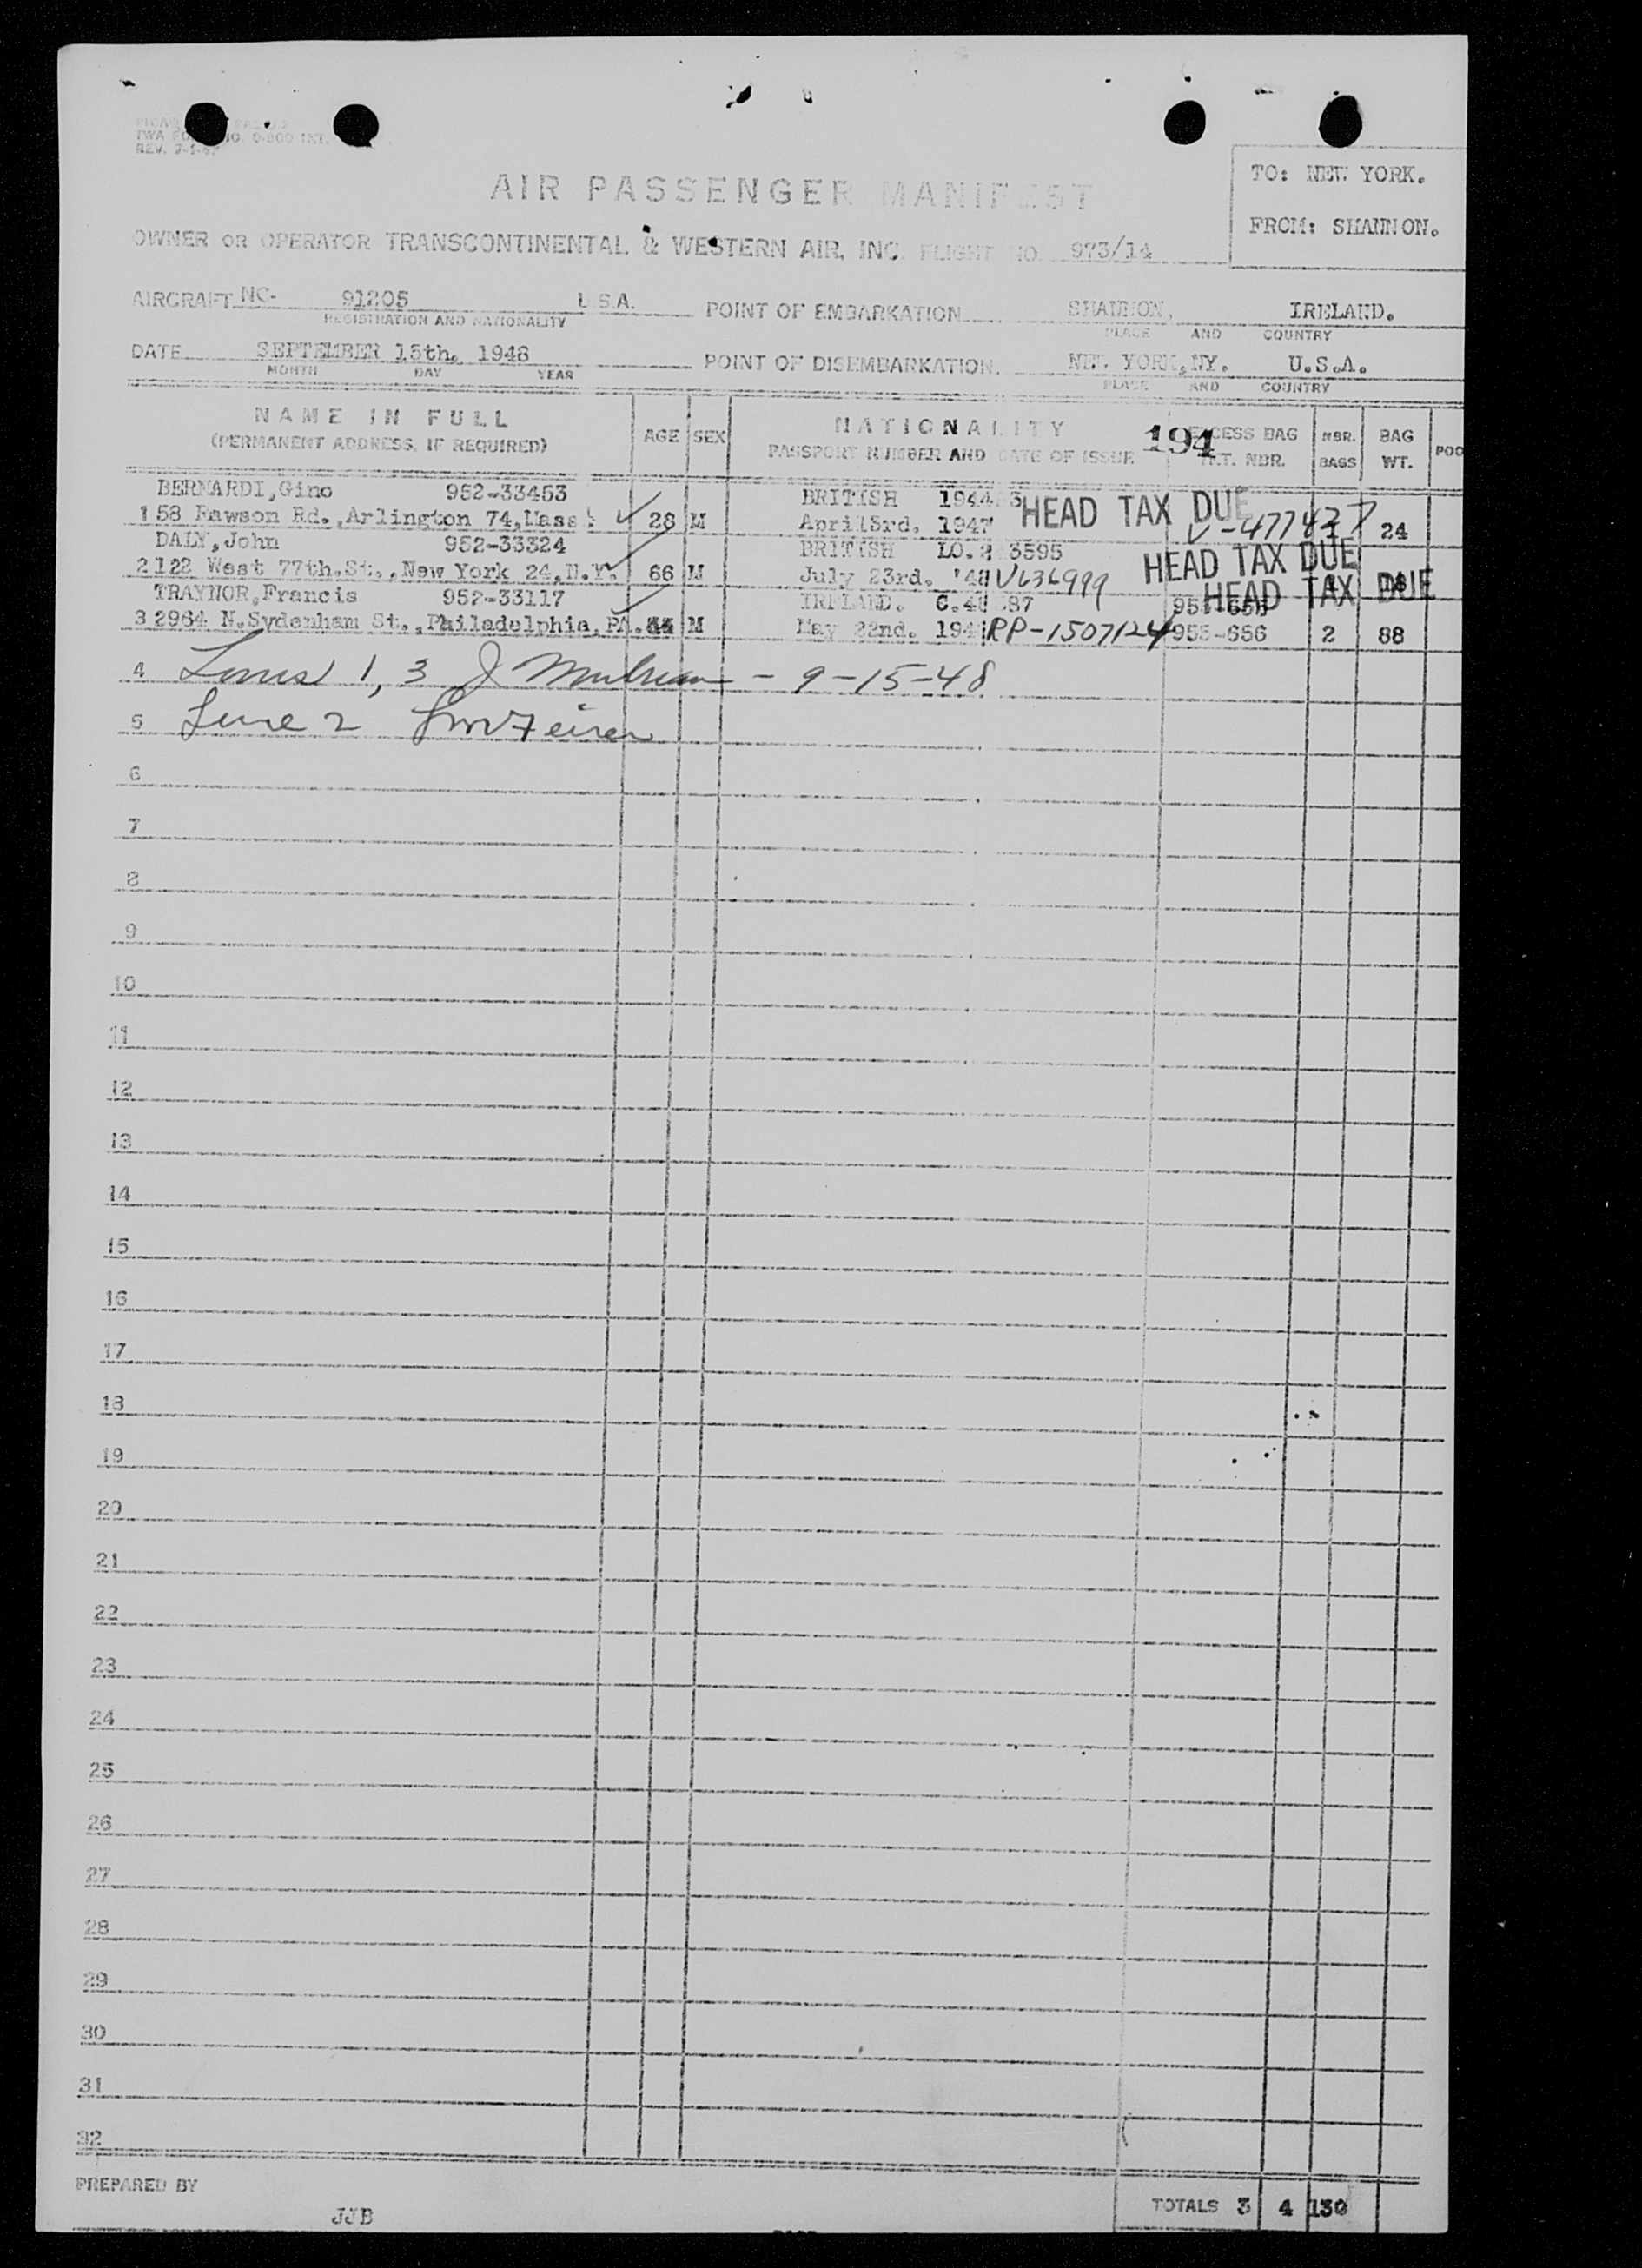 TWA NO. 0-800 INT.
REV.
TO: NEW YORK.
AIR PASSENGER MANIFEST
FROM: SHANNON.
OWNER OR OPERATOR TRANSCONTINENTAL & WESTERN AIR, INC. FLIGHT NO. 973/14
AIRCRAFT NC- 91205 U.S.A. POINT OF EMBARKATION SHANNON, IRELAND.
REGISTRATION AND NATIONALITY PLACE AND COUNTRY
DATE SEPTEMBER 15th. 1948 POINT OF DISEMBARKATION. NEW YORK, NY. U.S.A.
MONTH DAY YEAR PLACE AND COUNTRY
NAME IN FULL AGE SEX NATIONALITY 194 EXCESS BAG NBR. BAG
(PERMANENT ADDRESS, IF REQUIRED) PASSPORT NUMBER AND DATE OF ISSUE TKT. NBR. BAGS WT.
BERNARDI,Gino 952-33453 BRITISH HEAD TAX DUE
1 58 Rawson Rd.,Arlington 74,Mass. 28 M April 3rd. 1947 V-477437 24
DALY,John 952-33324 BRITISH LO. 3595 HEAD TAX DUE
2 122 West 77th.St.,New York 24,N.Y. 66 M July 23rd. '48 V636999
TRAYNOR,Francis 952-33117 IRELAND. HEAD TAX DUE
3 2964 N.Sydenham St.,Philadelphia,PA. M May 22nd. RP-1507124 955-656 2 88
4 Lines 1, 3 J - 9-15-48
5 Line 2
6
7
8
9
10
11
12
13
14
15
16
17
18
19
20
21
22
23
24
25
26
27
28
29
30
31
32
PREPARED BY
JJB
TOTALS 3 4 130